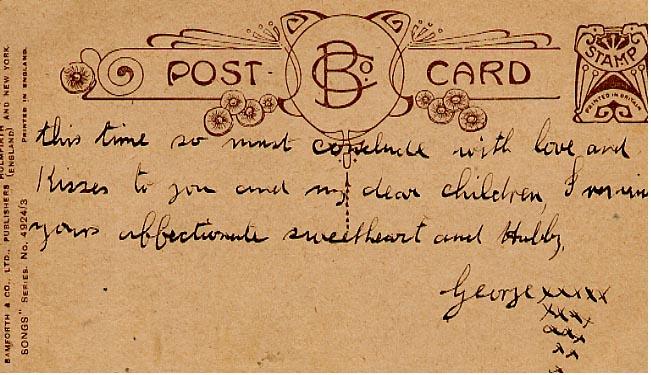 POST CARD
B Co.
STAMP
PRINTED IN BRITAIN
this time so must conclude with love and
Kisses to you and my dear children, I remain
yours affectionate sweetheart and Hubby,
George xxxxx
xxxx
xxx
xx
x
BAMFORTH & CO., LTD., PUBLISHERS HOLMFIRTH (ENGLAND) AND NEW YORK.
SONGS" SERIES. NO. 4924/3 PRINTED IN ENGLAND.